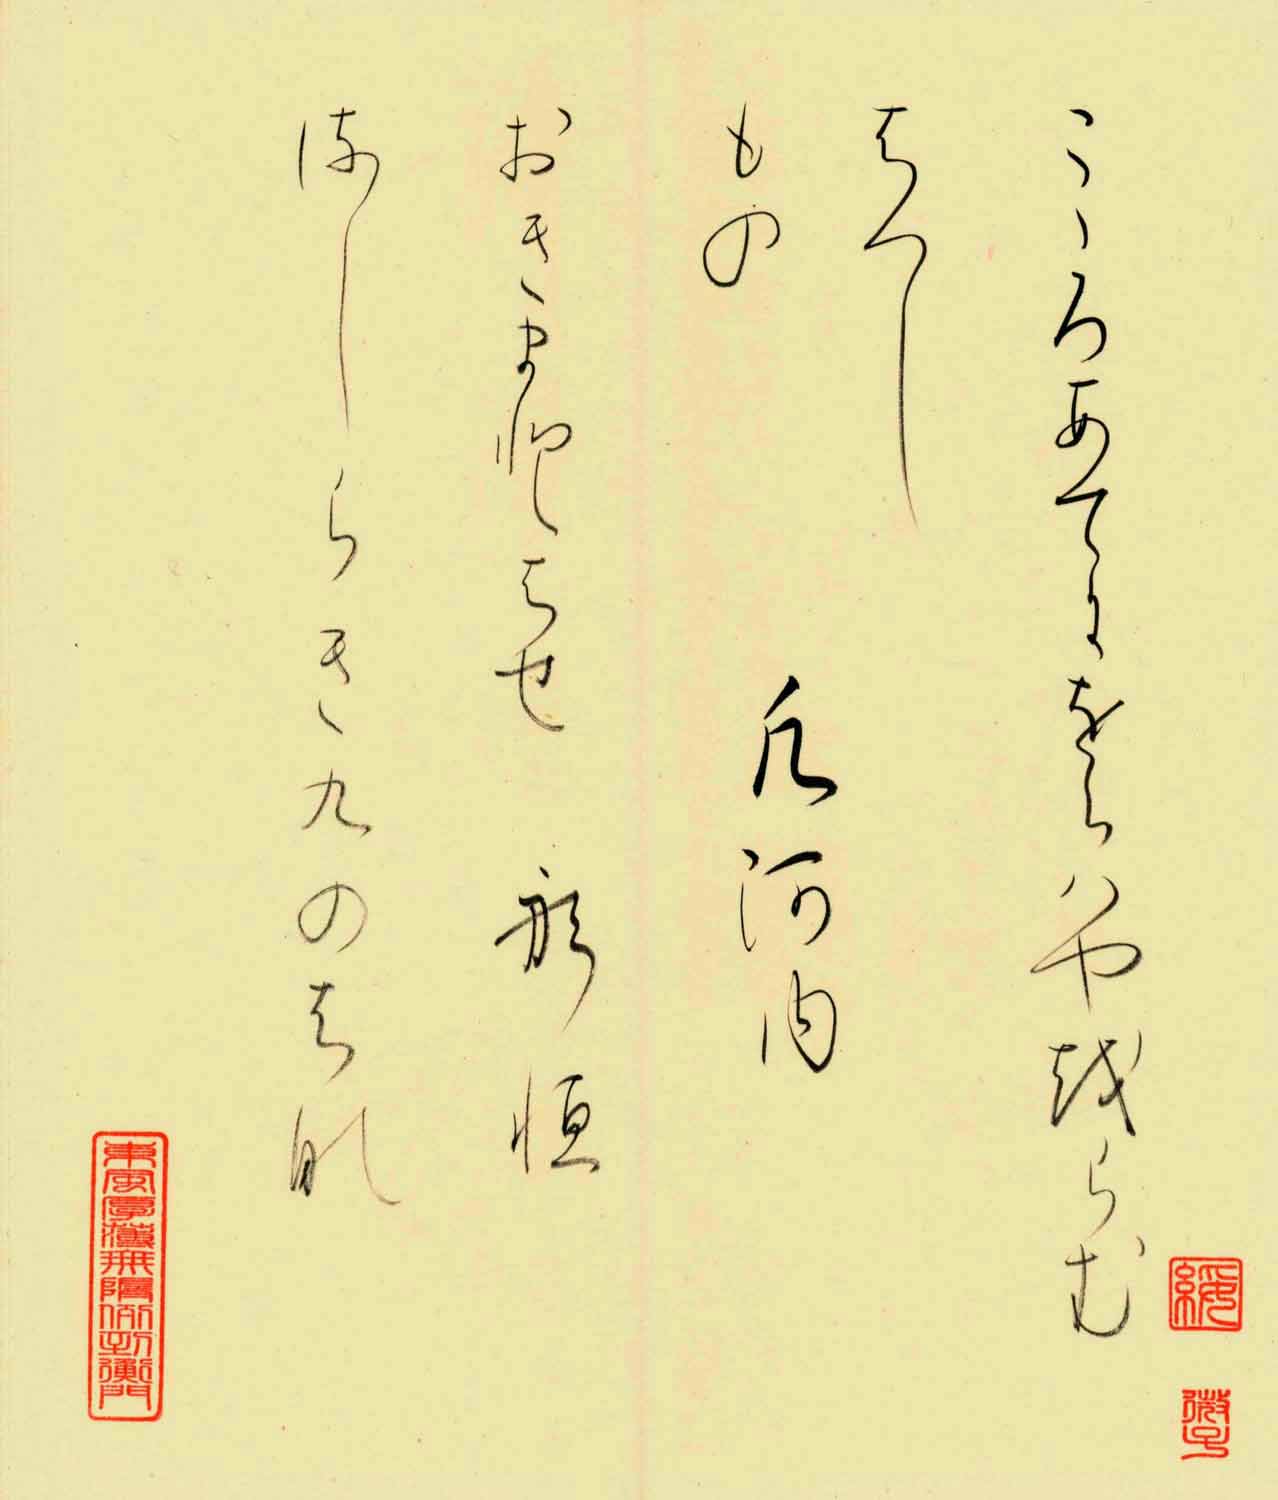 こゝろあてにをらハや越らむ
はつし
もの
凡河内
おきまとはせ
躬恒
流しらき九のは那